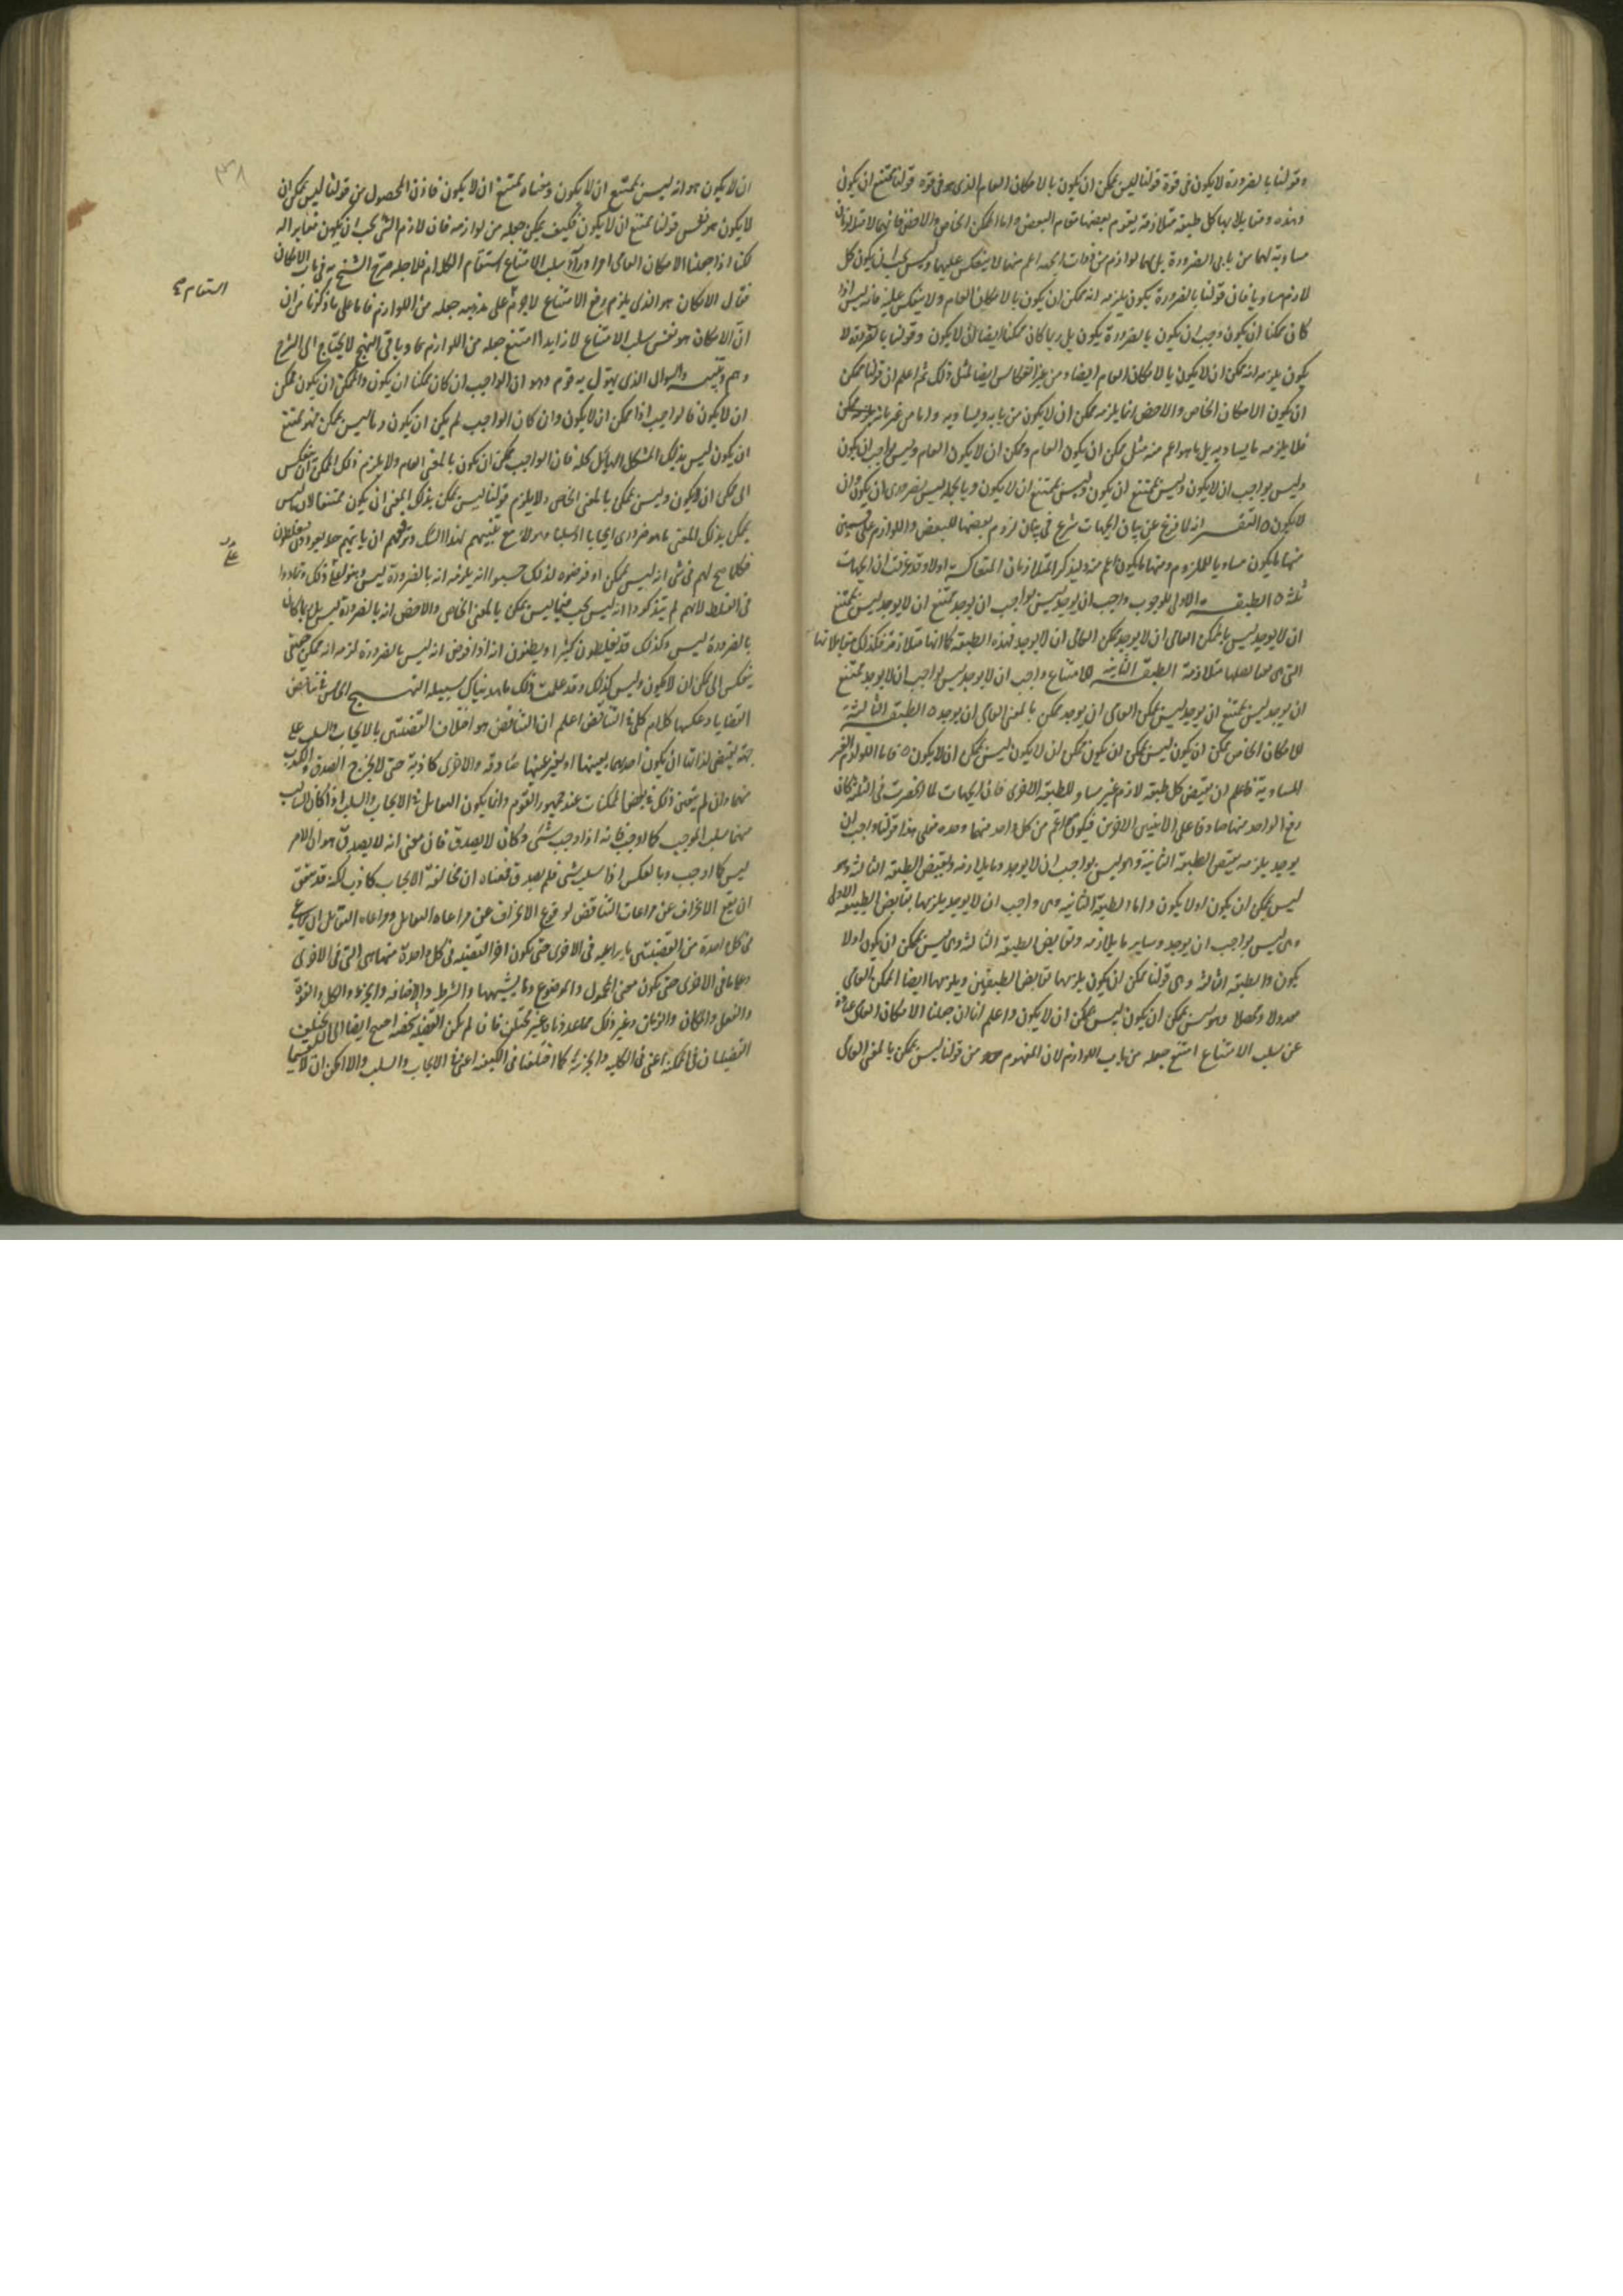 وقولنا بالضرورة لا يكون فى قوة قولنا ليس يمكن ان يكون بالامكان العام الذى هو فى قوة قولنا يمتنع ان يكون
وهذه ومقابلاتها كل طبقة متلازمة يقوم بعضها مقام البعض واما الممكن الخاص والاخص فانهما لا متلازمان
مساوية لهما من بابى الضرورة بل لهما لوازم من ذوات الجهة اعم منهما لا ينعكس عليهما وليس يجب ان يكون كل
لازم مساويا فان قولنا بالضرورة يكون يلزمه انه ممكن ان يكون بالامكان العام ولا ينعكس عليه فانه ليس اذا
كان ممكنا ان يكون وجب ان يكون بالضرورة يكون بل ربما كان ممكنا ايضا ان لا يكون وقولنا بالضرورة لا
يكون يلزمه انه ممكن ان لا يكون بالامكان العام ايضا ومن غير انعكاس ايضا لمثل ذلك ثم اعلم ان قولنا ممكن
ان يكون الامكان الخاص والاخص انما يلزمه ممكن ان لا يكون من بابه ويساويه واما من غير بابه
فلا يلزمه ما يساويه بل ما هو اعم منه مثل ممكن ان يكون العام وممكن ان لا يكون العام وليس بواجب ان يكون
وليس بواجب ان لا يكون وليس بممتنع ان يكون وليس بممتنع ان لا يكون وبالجملة ليس بضرورى ان يكون وان
لا يكون ه التفسـ انه لما فرغ عن بيان الجهات شرع فى بيان لزوم بعضها للبعض واللوازم على قسمين
منها ما يكون مساويا للملزوم ومنها ما يكون اعم منه وليذكر المتلازمات المتعاكسة اولا وقد عرفت ان الجهات
ثلثة ه الطبقـة الاولى للوجوب واجب ان يوجد ليس بواجب ان يوجد يمتنع ان لا يوجد ليس بممتنع
ان لا يوجد ليس بالممكن العامى ان لا يوجد ممكن العامى ان لا يوجد فهذه الطبقة كما انها متلازمة فكذلك مقابلاتها
التى هى متلازمة الطبقة الثانية الامتناع واجب ان لا يوجد ليس بواجب ان لا يوجد يمتنع
ان يوجد ليس بممتنع ان يوجد ليس بممكن العامى ان يوجد ممكن بالمعنى العامى ان يوجد ه الطبقة الثالثة
الامكان الخاص يمكن ان يكون ليس يمكن ان يكون يمكن ان لا يكون ليس يمكن ان لا يكون ه فاما اللوازم الغير
المساوية فاعلم ان نقيض كل طبقة لازم غير مساو للطبقة الاخرى فان الجهات لما انحصرت فى الثلثة كان
رفع الواحد منها صادقا على الاثنين الاخرين فيكون اعم من كل واحد منهما وحده فعلى هذا قولنا واجب ان
يوجد يلزمه نقيض الطبقة الثانية وهو ليس بواجب ان لا يوجد وما يلازمه ونقيض الطبقة الثالثة وهو
ليس يمكن ان يكون او لا يكون واما الطبقة الثانية وهى واجب ان لا يوجد يلزمها نقايض الطبقة الاولى
وهى ليس بواجب ان يوجد وساير ما يلازمه ونقايض الطبقة الثالثة وهى ليس يمكن ان يكون او لا
يكون والطبقة الثالثة وهى قولنا ممكن ان يكون يلزمها نقايض الطبقتين ويلزمها ايضا الممكن العامى
معدولا ومحصلا وهو ليس يمكن ان يكون ليس يمكن ان لا يكون واعلم انا ان جعلنا الامكان العامى عبارة
عن سلب الامتناع امتنع جعله من باب اللوازم لان المفهوم من قولنا ليس يمكن بالمعنى العامى
ان لا يكون هو انه ليس يمتنع ان لا يكون ومعناه يمتنع ان لا يكون فاذن المحصول من قولنا ليس يمكن ان
لا يكون هو نفس قولنا يمتنع ان لا يكون فكيف يمكن جعله من لوازمه فان لازم الشئ يجب ان يكون مغايرا له
لكنا اذا جعلنا الامكان العامى امرا وراء سلب الامتناع استقام الكلام فلاجله صرح الشيخ به فى باب الامكان
فقال الامكان هو الذى يلزم رفع الامتناع لا جرم على مذهبه جعله من اللوازم فاما على ما ذكرنا من ان
ان الامكان هو نفس سلب الامتناع لا زايدا امتنع جعله من اللوازم وباقى النهج لا يحتاج الى الشرح
وهم وتنبيه والسوال الذى يهول به قوم وهو ان الواجب ان كان ممكنا ان يكون والممكن ان يكون ممكن
ان لا يكون فالواجب اذا ممكن ان لا يكون وان كان الواجب لم يكن ان يكون وما ليس بممكن فهو ممتنع
ان يكون ليس بذلك المشكل الهايل كله فان الواجب ممكن ان يكون بالمعنى العام ولا يلزم ذلك الممكن ان ينعكس
الى ممكن ان لا يكون وليس بممكن بالمعنى الخاص ولا يلزم قولنا ليس بممكن بذلك المعنى ان يكون ممتنعا لان ما ليس
بممكن بذلك المعنى ما هو ضرورى ايجابا او سلبا وهولاء مع تنبيههم لهذا الشك وتوقعهم ان ياتيهم حله يعودون فيغلطون
فكلما صح لهم فى شئ انه ليس بممكن او فرضوه لذلك حسبوا انه يلزمه انه بالضرورة ليس وبنوا على ذلك وتمادوا
فى الغلط لانهم لم يتذكروا انه ليس يجب فيما ليس بممكن بالمعنى الخاص والاخص انه بالضرورة ليس بل ربما كان
بالضرورة ليس وكذلك قد يغلطون كثيرا ويظنون انه اذا فرض انه ليس بالضرورة لزم انه ممكن حتى
ينعكس الى ممكن ان لا يكون وليس كذلك وقد علمت ذلك مما هديناك سبيله النهـج الخامس فى تناقض
القضايا وعكسها كلام كلى فى التناقض اعلم ان التناقض هو اختلاف القضيتين بالايجاب والسلب على
جهة يقتضى لذاتها ان يكون احديهما بعينها او بغير عينها صادقة والاخرى كاذبة حتى لا يخرج الصدق والكذب
منهما وان لم يتعين ذلك فى بعض الممكنات عند جمهور القوم وانما يكون التقابل فى الايجاب والسلب اذا كان السالب
منهما سلب الموجب كما اوجب فانه اذا اوجب شئ وكان لا يصدق فان معنى انه لا يصدق هو ان الامر
ليس كما اوجب وبالعكس اذا سلب شئ فلم يصدق فمعناه ان مخالفة الايجاب كاذب لكنه قد يتفق
ان يقع الانحراف عن مراعات التناقض لوقوع الانحراف عن مراعاة التقابل ومراعاة التقابل ان يراعى
فى كل واحدة من القضيتين ما يراعيه فى الاخرى حتى يكون اجزا القضية فى كل واحدة منهما هى التى فى الاخرى
وعلى ما فى الاخرى حتى يكون معنى المحمول والموضوع وما يشبههما والشرط والاضافة والجزء والكل والقوة
والفعل والمكان والزمان وغير ذلك مما عددناه غير مختلف فان لم تكن القضية شخصية احتيج ايضا الى ان يختلف
القضيتان فى الكمية اعنى فى الكلية والجزئية كما اختلفتا فى الكيفية اعنى فى الايجاب والسلب والا امكن ان لا يقتسما